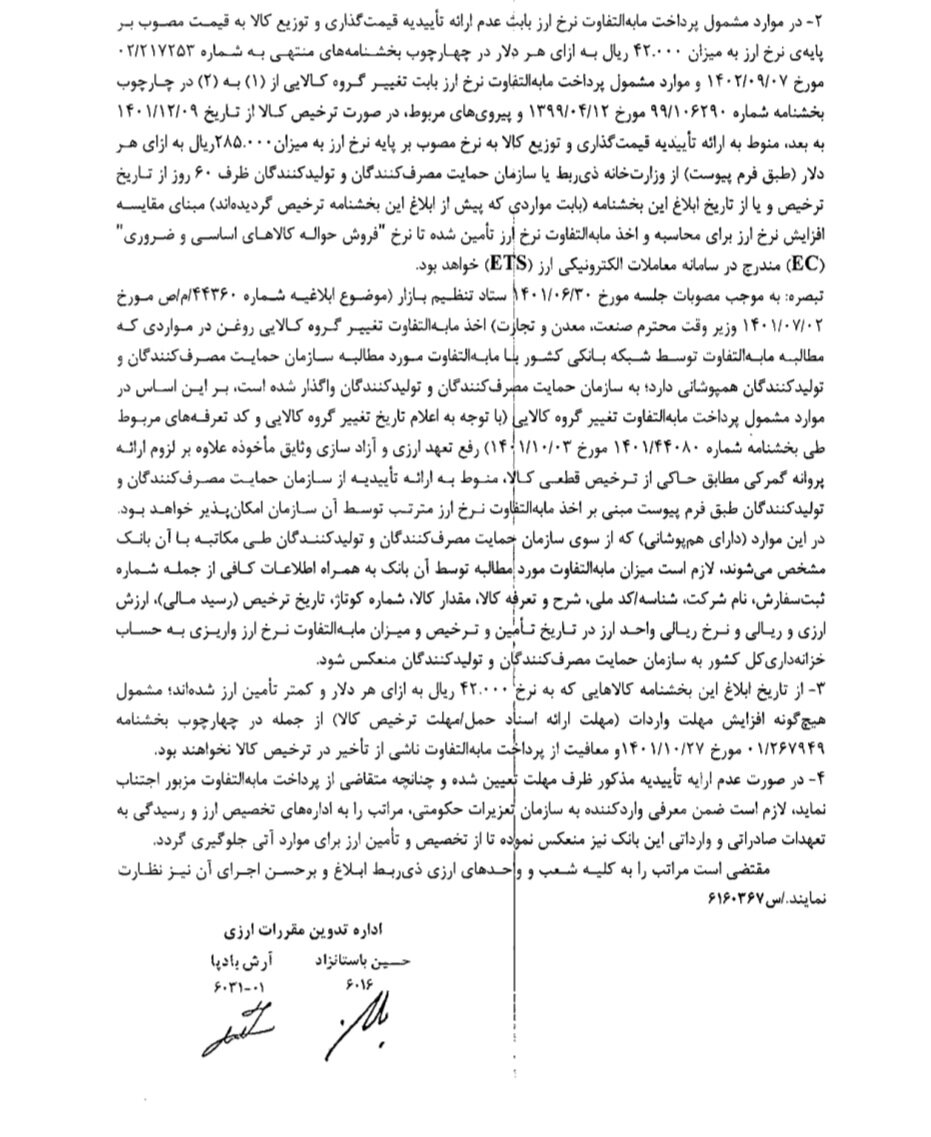 ۲- در موارد مشمول پرداخت مابه‌التفاوت نرخ ارز بابت عدم ارائه تأییدیه قیمت‌گذاری و توزیع کالا به قیمت مصوب بر
پایه‌ی نرخ ارز به میزان ۴۲.۰۰۰ ریال به ازای هر دلار در چهارچوب بخشنامه‌های منتهی به شماره ۰۲/۲۱۷۲۵۳
مورخ ۱۴۰۲/۰۹/۰۷ و موارد مشمول پرداخت مابه‌التفاوت نرخ ارز بابت تغییر گروه کالایی از (۱) به (۲) در چارچوب
بخشنامه شماره ۹۹/۱۰۶۲۹۰ مورخ ۱۳۹۹/۰۴/۱۲ و پیروی‌های مربوط، در صورت ترخیص کالا از تاریخ ۱۴۰۱/۱۲/۰۹
به بعد، منوط به ارائه تأییدیه قیمت‌گذاری و توزیع کالا به نرخ مصوب بر پایه نرخ ارز به میزان۲۸۵.۰۰۰ریال به ازای هر
دلار (طبق فرم پیوست) از وزارت‌خانه ذی‌ربط یا سازمان حمایت مصرف‌کنندگان و تولیدکنندگان ظرف ۶۰ روز از تاریخ
ترخیص و یا از تاریخ ابلاغ این بخشنامه (بابت مواردی که پیش از ابلاغ این بخشنامه ترخیص گردیده‌اند) مبنای مقایسه
افزایش نرخ ارز برای محاسبه و اخذ مابه‌التفاوت نرخ ارز تأمین شده تا نرخ "فروش حواله کالاهای اساسی و ضروری"
(EC) مندرج در سامانه معاملات الکترونیکی ارز (ETS) خواهد بود.
تبصره: به موجب مصوبات جلسه مورخ ۱۴۰۱/۰۶/۳۰ ستاد تنظیم بازار (موضوع ابلاغیه شماره ۴۴۳۶۰/م/ص مورخ
۱۴۰۱/۰۷/۰۲ وزیر وقت محترم صنعت، معدن و تجارت) اخذ مابه‌التفاوت تغییر گروه کالایی روغن در مواردی که
مطالبه مابه‌التفاوت توسط شبکه بانکی کشور با مابه‌التفاوت مورد مطالبه سازمان حمایت مصرف‌کنندگان و
تولیدکنندگان همپوشانی دارد؛ به سازمان حمایت مصرف‌کنندگان و تولیدکنندگان واگذار شده است، بر این اساس در
موارد مشمول پرداخت مابه‌التفاوت تغییر گروه کالایی (با توجه به اعلام تاریخ تغییر گروه کالایی و کد تعرفه‌های مربوط
طی بخشنامه شماره ۱۴۰۱/۴۴۰۸۰ مورخ ۱۴۰۱/۱۰/۰۳) رفع تعهد ارزی و آزاد سازی وثایق مأخوذه علاوه بر لزوم ارائه
پروانه گمرکی مطابق حاکی از ترخیص قطعی کالا، منوط به ارائه تأییدیه از سازمان حمایت مصرف‌کنندگان و
تولیدکنندگان طبق فرم پیوست مبنی بر اخذ مابه‌التفاوت نرخ ارز مترتب توسط آن سازمان امکان‌پذیر خواهد بود.
در این موارد (دارای هم‌پوشانی) که از سوی سازمان حمایت مصرف‌کنندگان و تولیدکنندگان طی مکاتبه با آن بانک
مشخص می‌شوند، لازم است میزان مابه‌التفاوت مورد مطالبه توسط آن بانک به همراه اطلاعات کافی از جمله شماره
ثبت‌سفارش، نام شرکت، شناسه/کد ملی، شرح و تعرفه کالا، مقدار کالا، شماره کوتاژ، تاریخ ترخیص (رسید مالی)، ارزش
ارزی و ریالی و نرخ ریالی واحد ارز در تاریخ تأمین و ترخیص و میزان مابه‌التفاوت نرخ ارز واریزی به حساب
خزانه‌داری‌کل کشور به سازمان حمایت مصرف‌کنندگان و تولیدکنندگان منعکس شود.
۳- از تاریخ ابلاغ این بخشنامه کالاهایی که به نرخ ۴۲.۰۰۰ ریال به ازای هر دلار و کمتر تأمین ارز شده‌اند؛ مشمول
هیچ‌گونه افزایش مهلت واردات (مهلت ارائه اسناد حمل/مهلت ترخیص کالا) از جمله در چهارچوب بخشنامه
۰۱/۲۶۷۹۴۹ مورخ ۱۴۰۱/۱۰/۲۷و معافیت از پرداخت مابه‌التفاوت ناشی از تأخیر در ترخیص کالا نخواهند بود.
۴- در صورت عدم ارایه تأییدیه مذکور ظرف مهلت تعیین شده و چنانچه متقاضی از پرداخت مابه‌التفاوت مزبور اجتناب
نماید، لازم است ضمن معرفی واردکننده به سازمان تعزیرات حکومتی، مراتب را به اداره‌های تخصیص ارز و رسیدگی به
تعهدات صادراتی و وارداتی این بانک نیز منعکس نموده تا از تخصیص و تأمین ارز برای موارد آتی جلوگیری گردد.
مقتضی است مراتب را به کلیه شعب و واحدهای ارزی ذی‌ربط ابلاغ و برحسن اجرای آن نیز نظارت
نمایند./س۶۱۶۰۳۶۷
اداره تدوین مقررات ارزی
حسین باستانزاد آرش بادپا
۶۰۱۶ ۶۰۳۱-۰۱